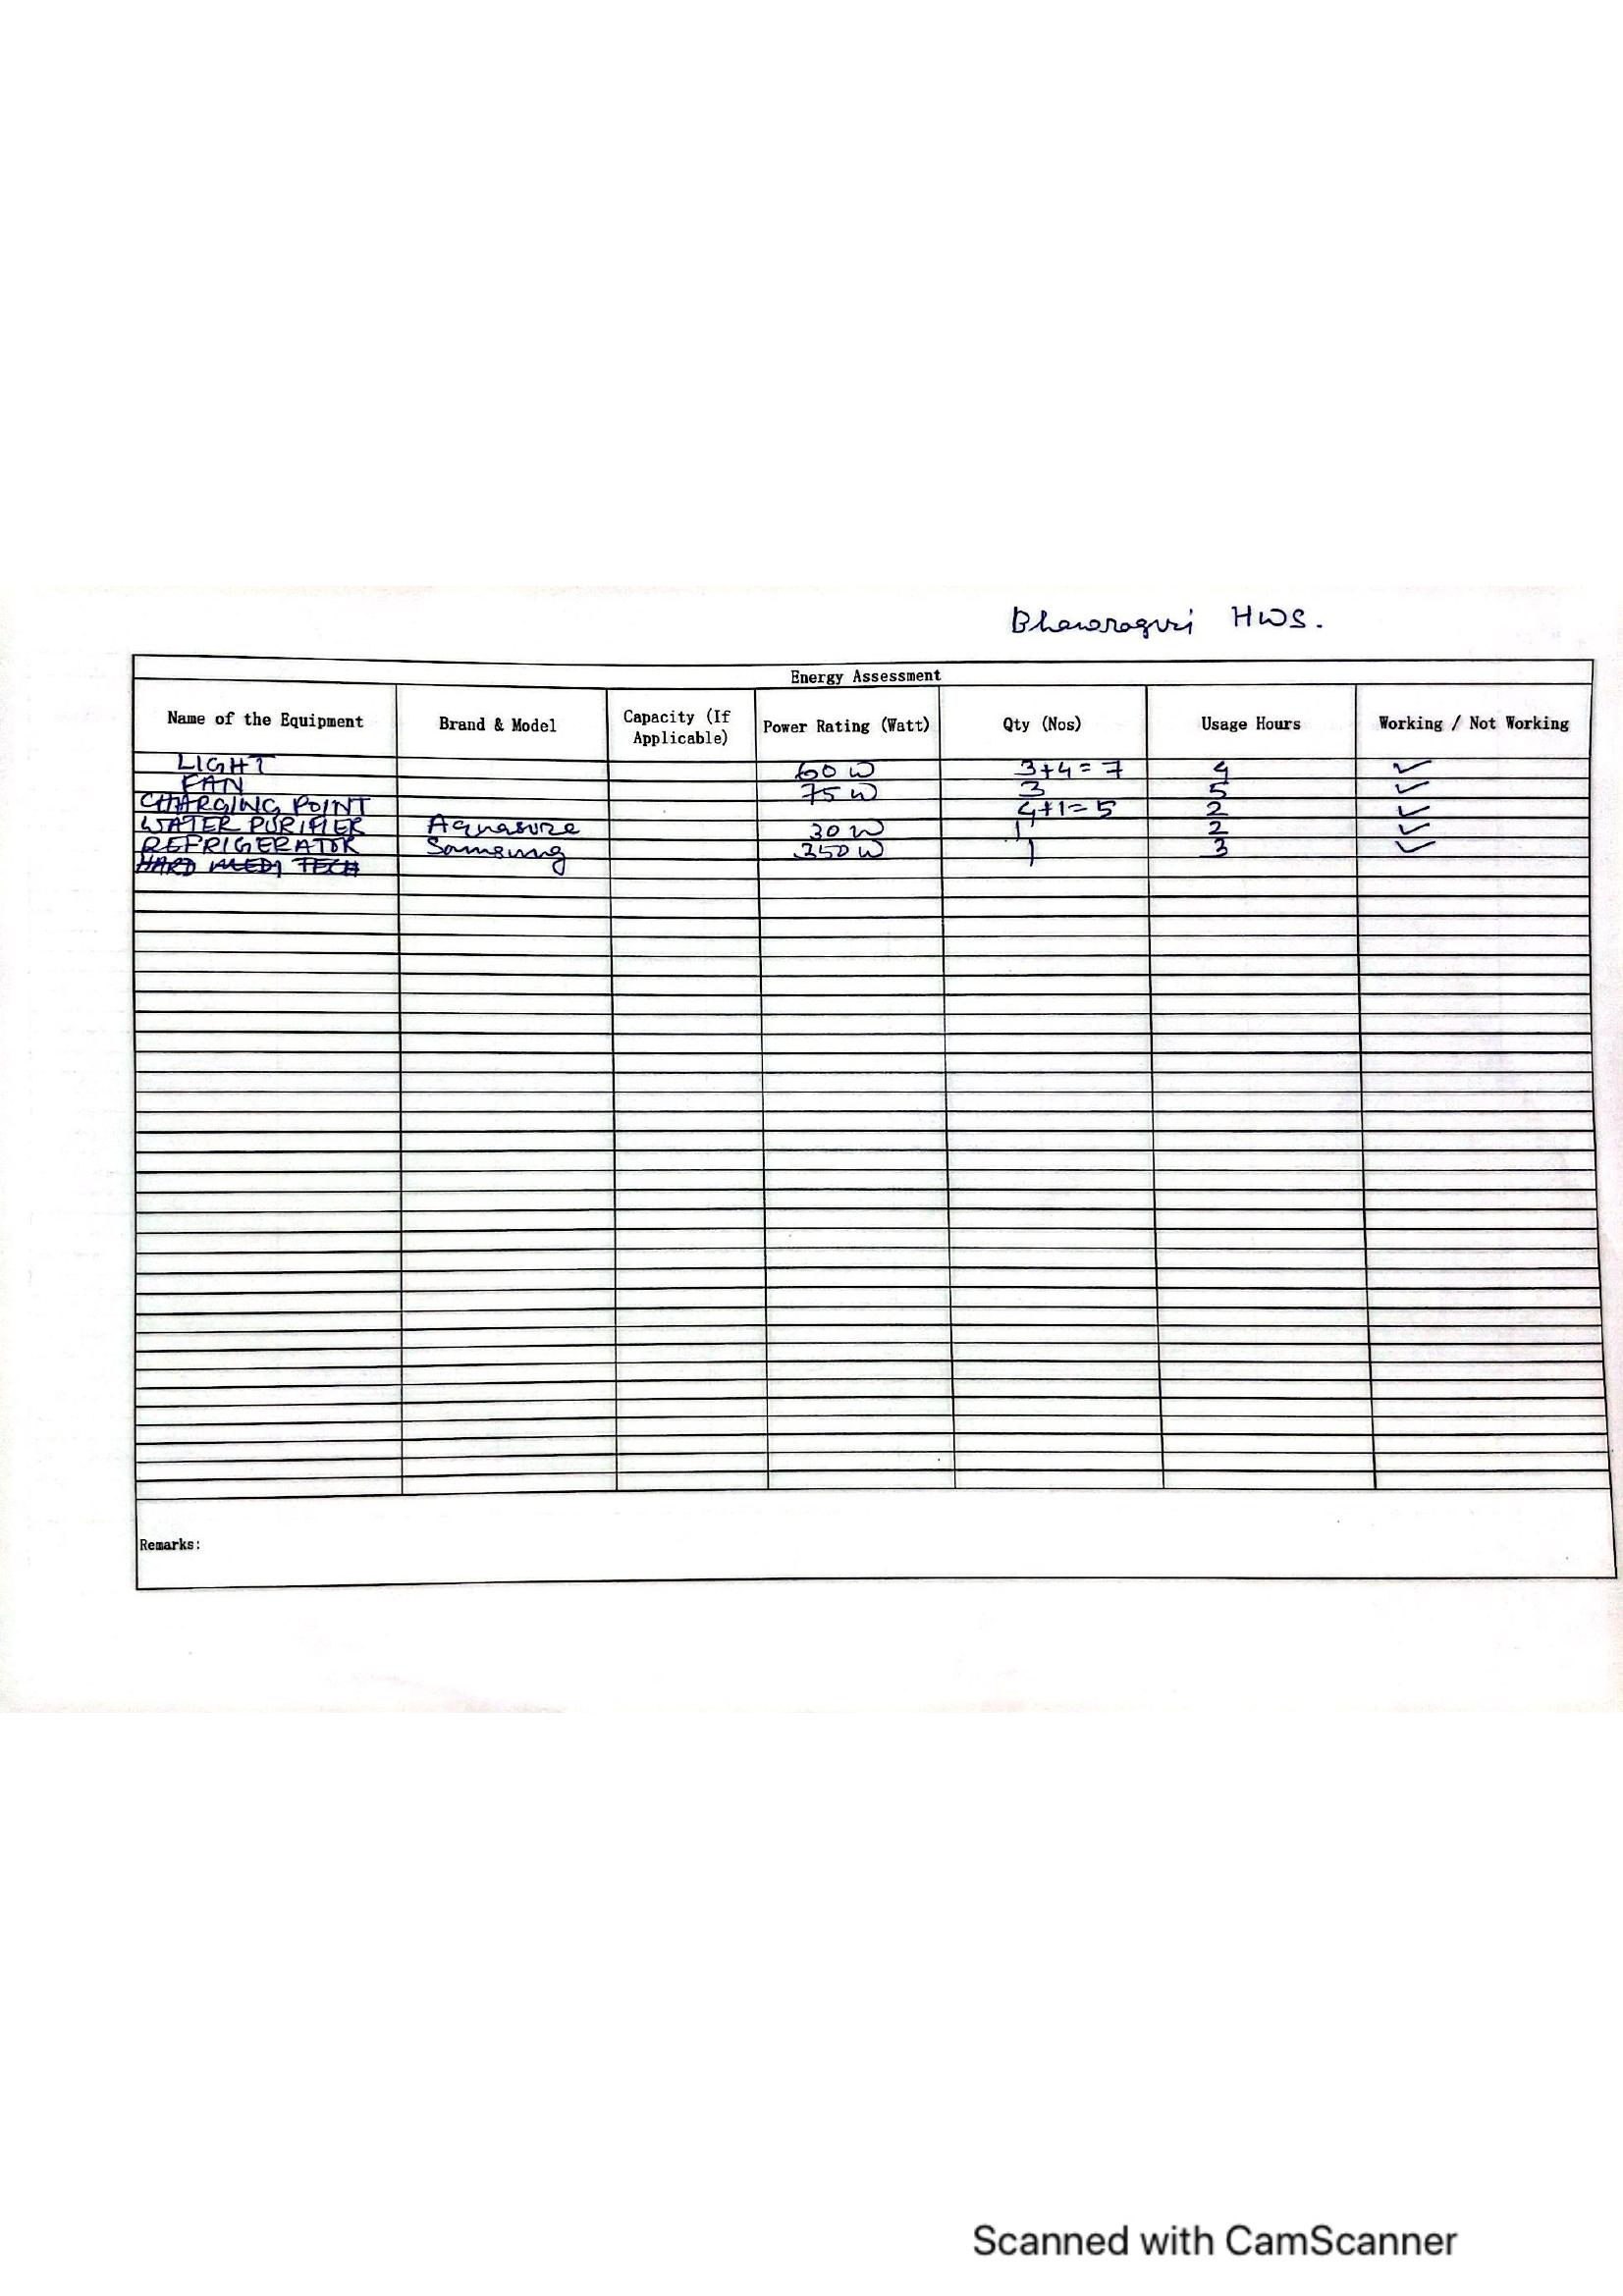 Bhawaraguri HWS.
Energy Assessment
Name of the Equipment Brand & Model Capacity (If Applicable) Power Rating (Watt) Qty (Nos) Usage Hours Working / Not Working
LIGHT 60 W 3+4=7 4 ✓
FAN 75 W 3 5 ✓
CHARGING POINT 4+1=5 2 ✓
WATER PURIFIER Aquasure 30 W 1 2 ✓
REFRIGERATOR Samsung 350 W 1 3 ✓
Remarks:
Scanned with CamScanner